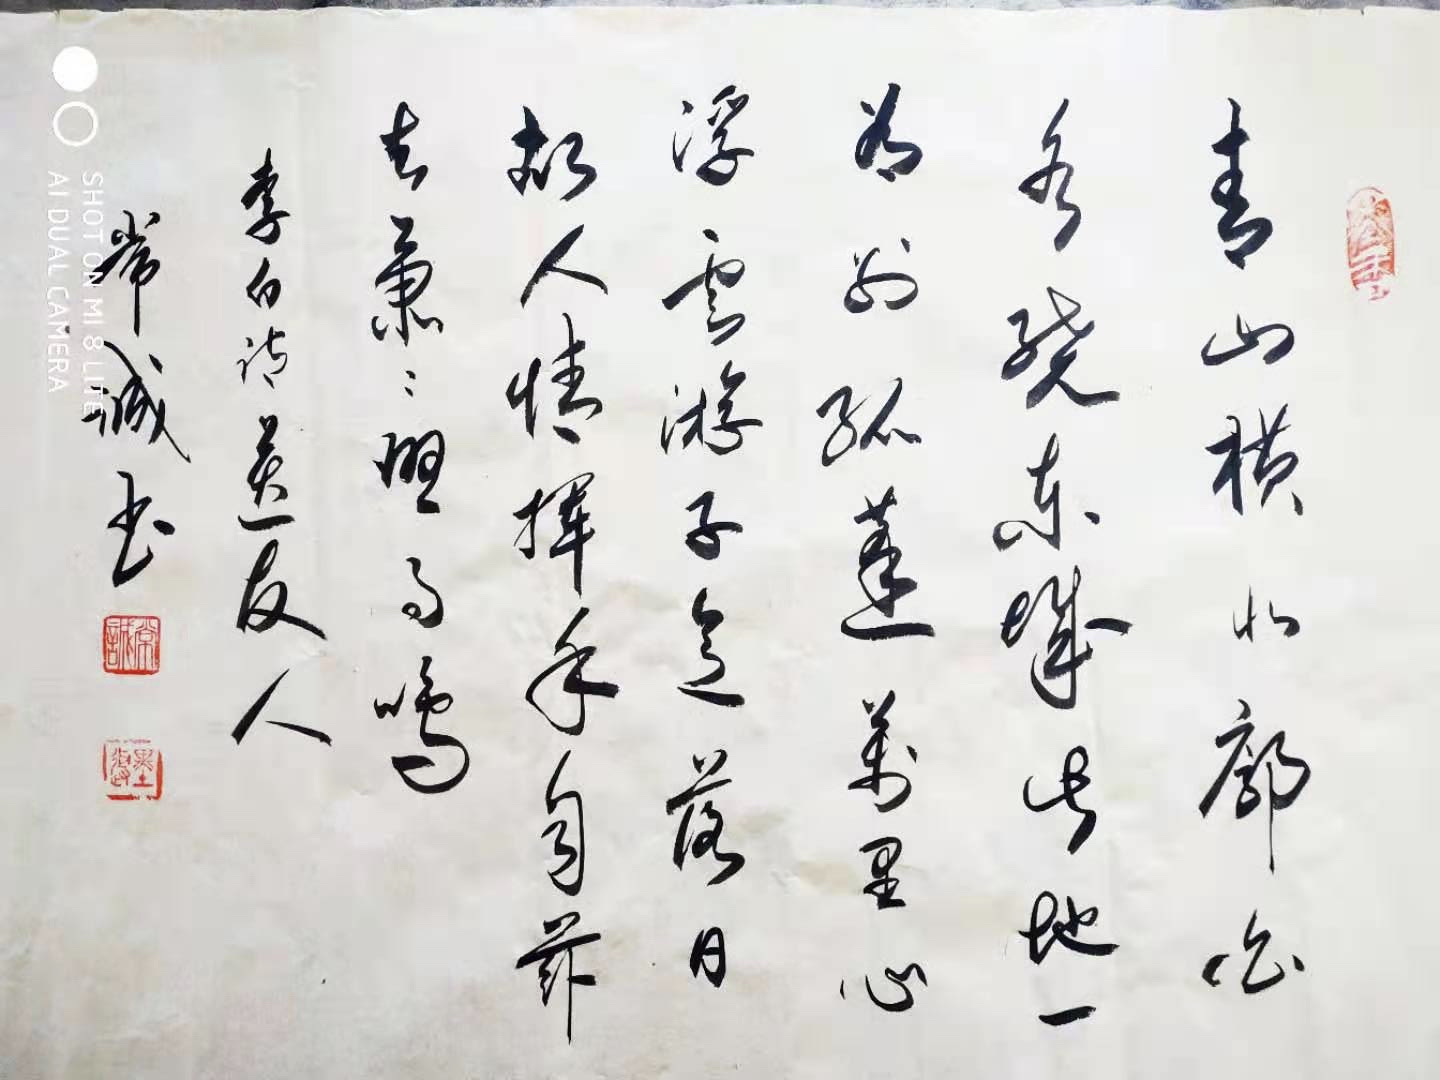 青山横北廓白
水繞东城此地一
为别孤蓬萬里心
浮雲游子意落日
故人情揮手自兹
去蕭〻班馬鳴
李白诗送友人
常诚书
常誠
SHOT ON MI 8 LITE
AI DUAL CAMERA